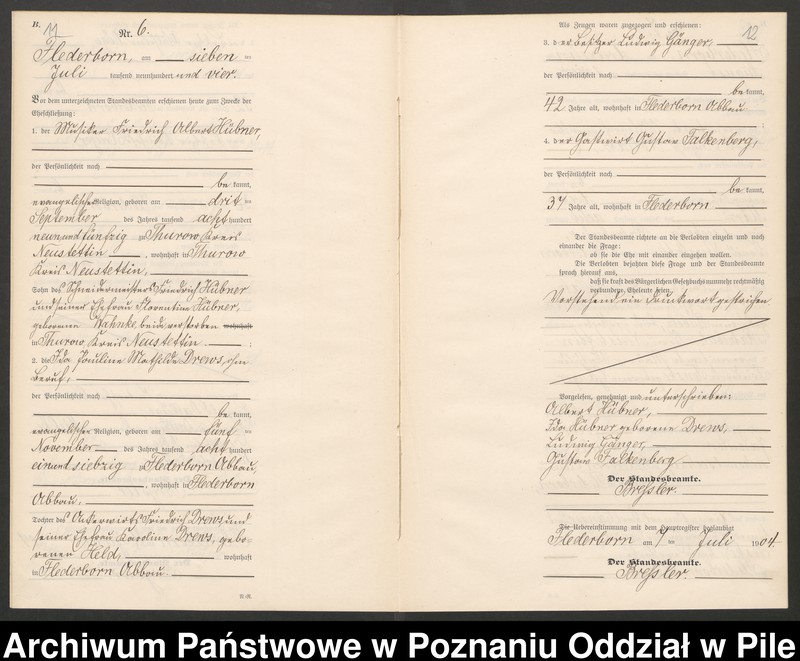 B.
11
Nr. 6.
Flederborn, am sieben ten
Juli tausend neunhundert und vier.
Vor dem unterzeichneten Standesbeamten erschienen heute zum Zwecke der
Eheschließung:
1. der Musiker Friedrich Albert Hübner,
der Persönlichkeit nach
be kannt,
evangelischer Religion, geboren am drit ten
September des Jahres tausend acht hundert
neunundfünfzig zu Thurow, Kreis
Neustettin, wohnhaft in Thurow
Kreis Neustettin,
Sohn des Schneidermeisters Friedrich Hübner
und seiner Ehefrau Florentine Hübner,
geborenen Wahnke, beide verstorben wohnhaft
in Thurow, Kreis Neustettin :
2. die Ida Pauline Mathilde Drews, ohne
Beruf,
der Persönlichkeit nach
be kannt,
evangelischer Religion, geboren am fünf ten
November des Jahres tausend acht hundert
einundsiebzig Flederborn Abbau,
, wohnhaft in Flederborn
Abbau,
Tochter des Ackerwirts Friedrich Drews, und
seiner Ehefrau Karoline Drews, gebo-
renen Held, wohnhaft
in Flederborn Abbau.
B.-R.
12
Als Zeugen waren zugezogen und erschienen:
3. der Besitzer Ludwig Gänger,
der Persönlichkeit nach
be kannt,
42 Jahre alt, wohnhaft in Flederborn Abbau
;
4. der Gastwirt Gustav Falkenberg,
der Persönlichkeit nach
be kannt,
37 Jahre alt, wohnhaft in Flederborn
Der Standesbeamte richtete an die Verlobten einzeln und nach
einander die Frage:
ob sie die Ehe mit einander eingehen wollen.
Die Verlobten bejahten diese Frage und der Standesbeamte
sprach hierauf aus,
daß sie kraft des Bürgerlichen Gesetzbuchs nunmehr rechtmäßig
verbundene Eheleute seien.
Vorstehend ein Druckwort gestrichen
Vorgelesen, genehmigt und unterschrieben:
Albert Hübner,
Ida Hübner geborene Drews,
Ludwig Gänger,
Gustav Falkenberg
Der Standesbeamte.
Breßler.
Die Uebereinstimmung mit dem Hauptregister beglaubigt
Flederborn am 7 ten Juli 1904.
Der Standesbeamte.
Breßler
Archiwum Państwowe w Poznaniu Oddział w Pile